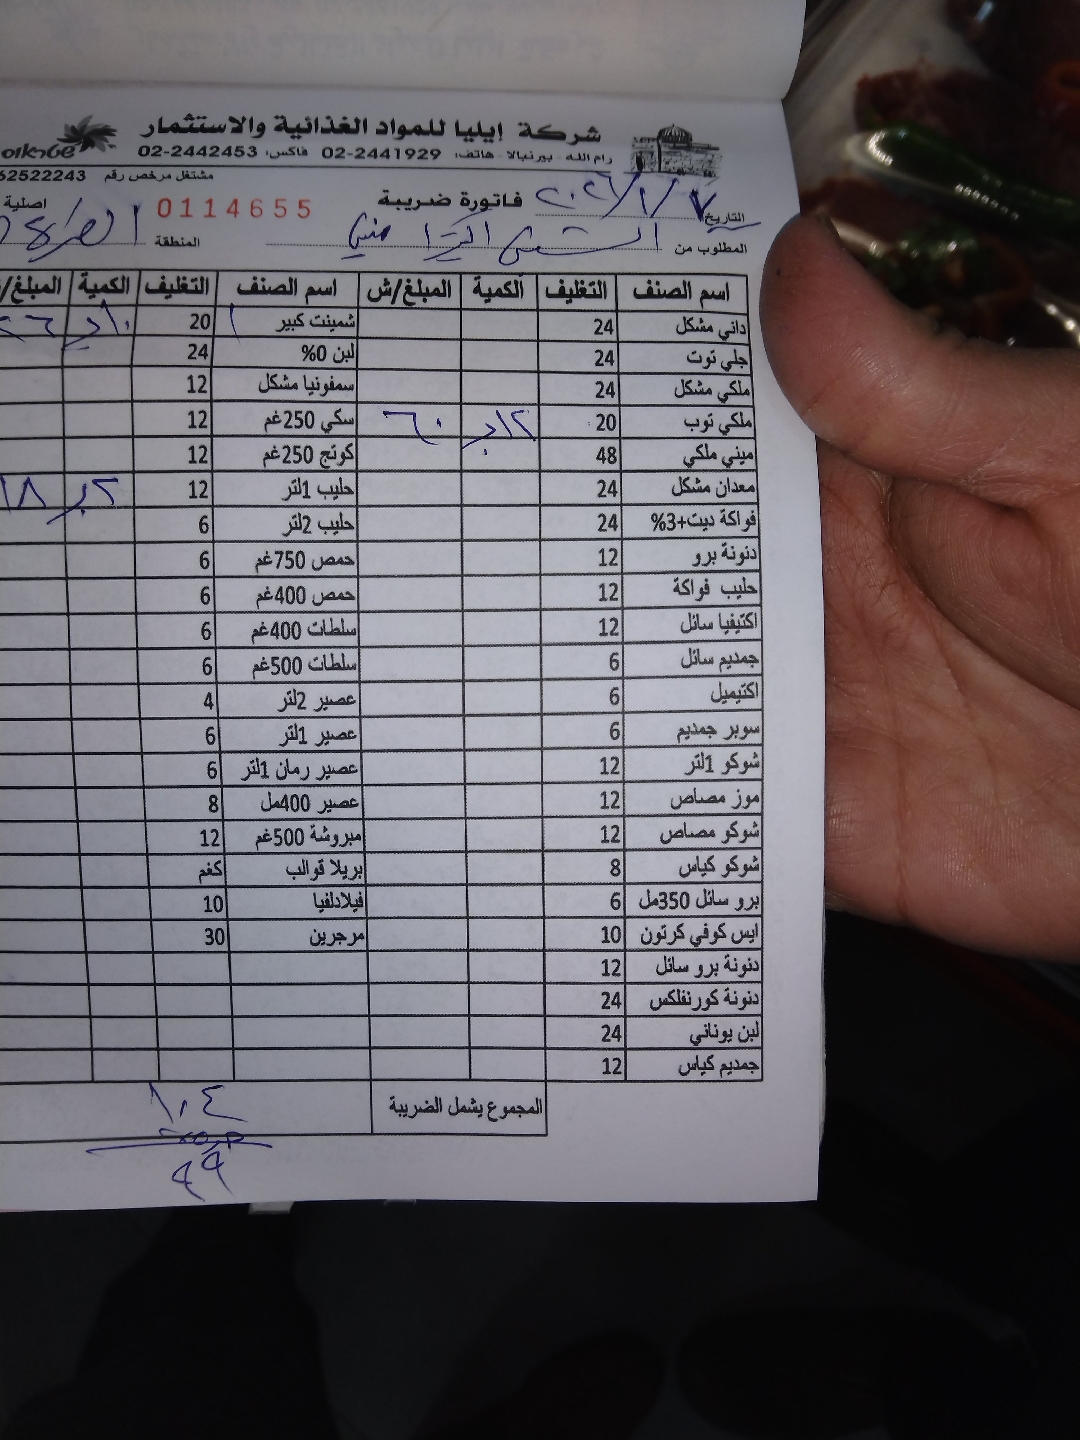 شركة إيليا للمواد الغذائية والاستثمار
رام الله - بيرنبالا - هاتف: 02-2441929 فاكس: 02-2442453
مشتغل مرخص رقم 62522243
التاريخ ٢٠٢٦/١/٧ فاتورة ضريبة 0114655 اصلية
المطلوب من المنطقة
اسم الصنف التغليف الكمية المبلغ/ش اسم الصنف التغليف الكمية المبلغ/
داني مشكل 24 شمينت كبير 20
جلي توت 24 لبن 0% 24
ملكي مشكل 24 سمفونيا مشكل 12
ملكي توب 20 ٦٠ سكي 250غم 12
ميني ملكي 48 كوتج 250غم 12
معدان مشكل 24 حليب 1لتر 12 ١٨
فواكة ديت+3% 24 حليب 2لتر 6
دنونة برو 12 حمص 750غم 6
حليب فواكة 12 حمص 400غم 6
اكتيفيا سائل 12 سلطات 400غم 6
جمديم سائل 6 سلطات 500غم 6
اكتيميل 6 عصير 2لتر 4
سوبر جمديم 6 عصير 1لتر 6
شوكو 1لتر 12 عصير رمان 1لتر 6
موز مصاص 12 عصير 400مل 8
شوكو مصاص 12 مبروشة 500غم 12
شوكو كياس 8 بريلا قوالب كغم
برو سائل 350مل 6 فيلادلفيا 10
ايس كوفي كرتون 10 مرجرين 30
دنونة برو سائل 12
دنونة كورنفلكس 24
لبن يوناني 24
جمديم كياس 12
المجموع يشمل الضريبة ١٠٤
٩٩